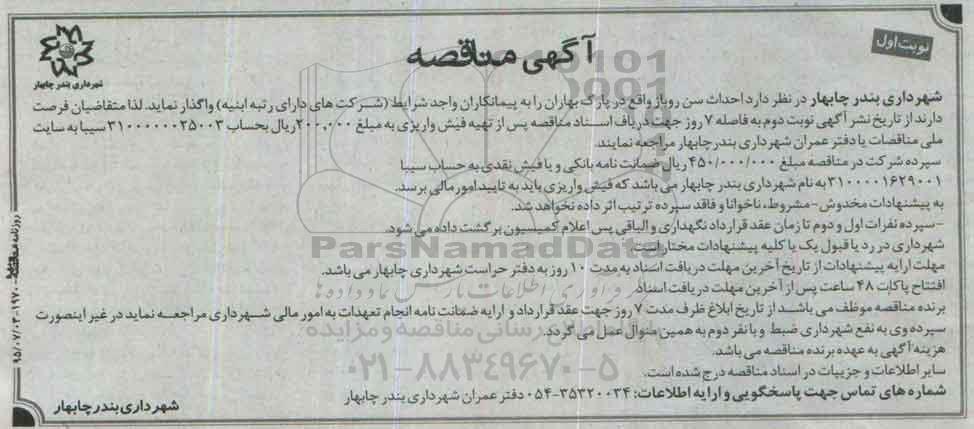 نوبت اول
آگهی مناقصه
شهرداری بندر چابهار
شهرداری بندر چابهار در نظر دارد احداث سن روباز واقع در پارک بهاران را به پیمانکاران واجد شرایط (شرکت های دارای رتبه ابنیه) واگذار نماید. لذا متقاضیان فرصت
دارند از تاریخ نشر آگهی نوبت دوم به فاصله ۷ روز جهت دریافت اسناد مناقصه پس از تهیه فیش واریزی به مبلغ ۲۰۰,۰۰۰ ریال بحساب ۳۱۰۰۰۰۰۰۲۵۰۰۳ سیبا به سایت
ملی مناقصات یا دفتر عمران شهرداری بندر چابهار مراجعه نمایند.
سپرده شرکت در مناقصه مبلغ ۴۵۰/۰۰۰/۰۰۰ ریال ضمانت نامه بانکی و یا فیش نقدی به حساب سیبا
۳۱۰۰۰۰۱۶۲۹۰۰۱ به نام شهرداری بندر چابهار می باشد که فیش واریزی باید به تایید امور مالی برسد.
به پیشنهادات مخدوش-مشروط، ناخوانا و فاقد سپرده ترتیب اثر داده نخواهد شد.
-سپرده نفرات اول و دوم تا زمان عقد قرارداد نگهداری و الباقی پس اعلام کمیسیون برگشت داده می شود.
شهرداری در رد یا قبول یک یا کلیه پیشنهادات مختار است.
مهلت ارایه پیشنهادات از تاریخ آخرین مهلت دریافت اسناد به مدت ۱۰ روز به دفتر حراست شهرداری چابهار می باشد.
افتتاح پاکات ۴۸ ساعت پس از آخرین مهلت دریافت اسناد
برنده مناقصه موظف می باشد از تاریخ ابلاغ ظرف مدت ۷ روز جهت عقد قرارداد و ارایه ضمانت نامه انجام تعهدات به امور مالی شهرداری مراجعه نماید در غیر اینصورت
سپرده وی به نفع شهرداری ضبط و با نفر دوم به همین منوال عمل می گردد.
هزینه آگهی به عهده برنده مناقصه می باشد.
سایر اطلاعات و جزییات در اسناد مناقصه درج شده است.
شماره های تماس جهت پاسخگویی و ارایه اطلاعات: ۳۵۳۲۰۰۳۴-۰۵۴ دفتر عمران شهرداری بندر چابهار
شهرداری بندر چابهار
ParsNamadData
۰۲۱-۸۸۳۴۹۶۷۰-۵